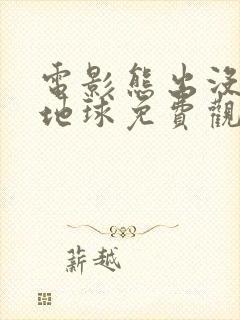 電影熊出沒
地球免費觀
薪越